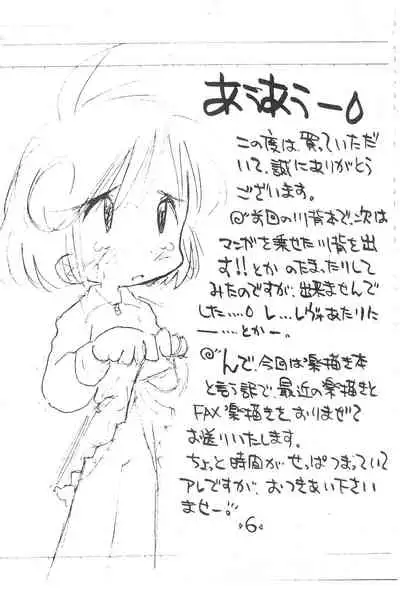 あうあうー
この度は、買っていただ
いて、誠にありがとう
ございます。
前回の川背本で、次は
マンガを乗せた川背を出
す!!とか のたまったりして
みたのですが、出来ませんで
した…。 レ…レヴォあたりに
ー…とかー。
んで、今回は楽描き本
と言う訳で、最近の楽描きと
FAX楽描きを、おりまぜて
お送りいたします。
ちょっと時間が せっぱつまっていて
アレですが、おつきあい下さい
ませー。
6